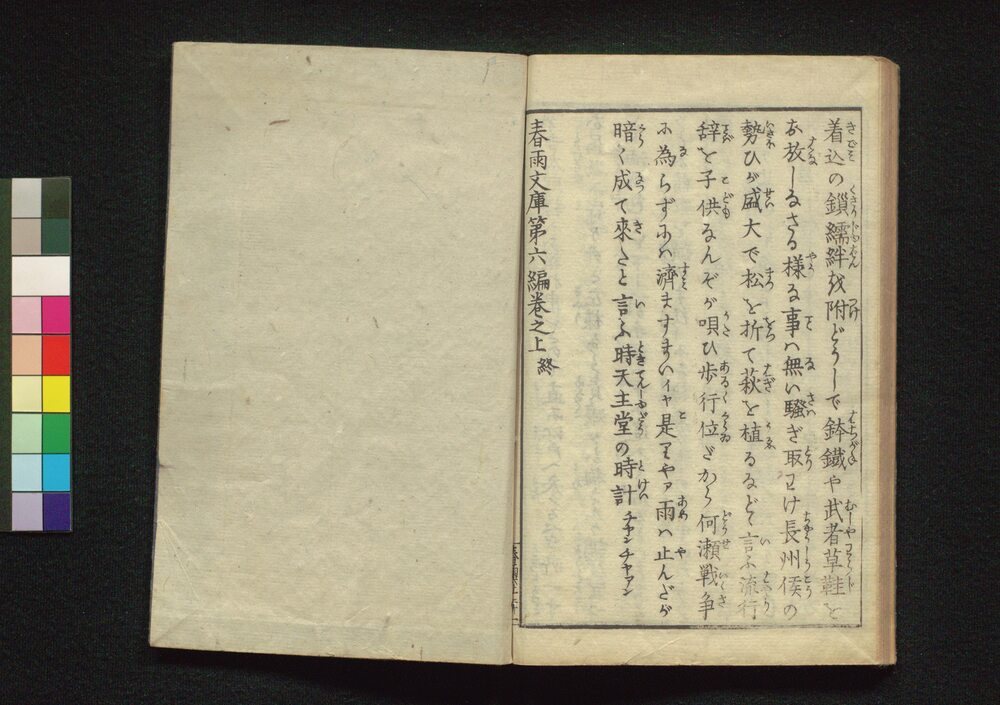 着込の鎖繻絆を附どうして鉢鐵や武者草鞋を
お放しなさる様な事は無い騒ぎ取わけ長州侯の
勢ひが盛大で松を折て萩を植るなどゝ言ふ流行
辞を子供なんぞが唄ひ歩行位だから何瀬戦争
に為らずには濟ますまいイヤ是りやア雨は止んだが
暗く成て來たと言ふ時天主堂の時計チヤンチヤアン
春雨文庫第六編巻之上終